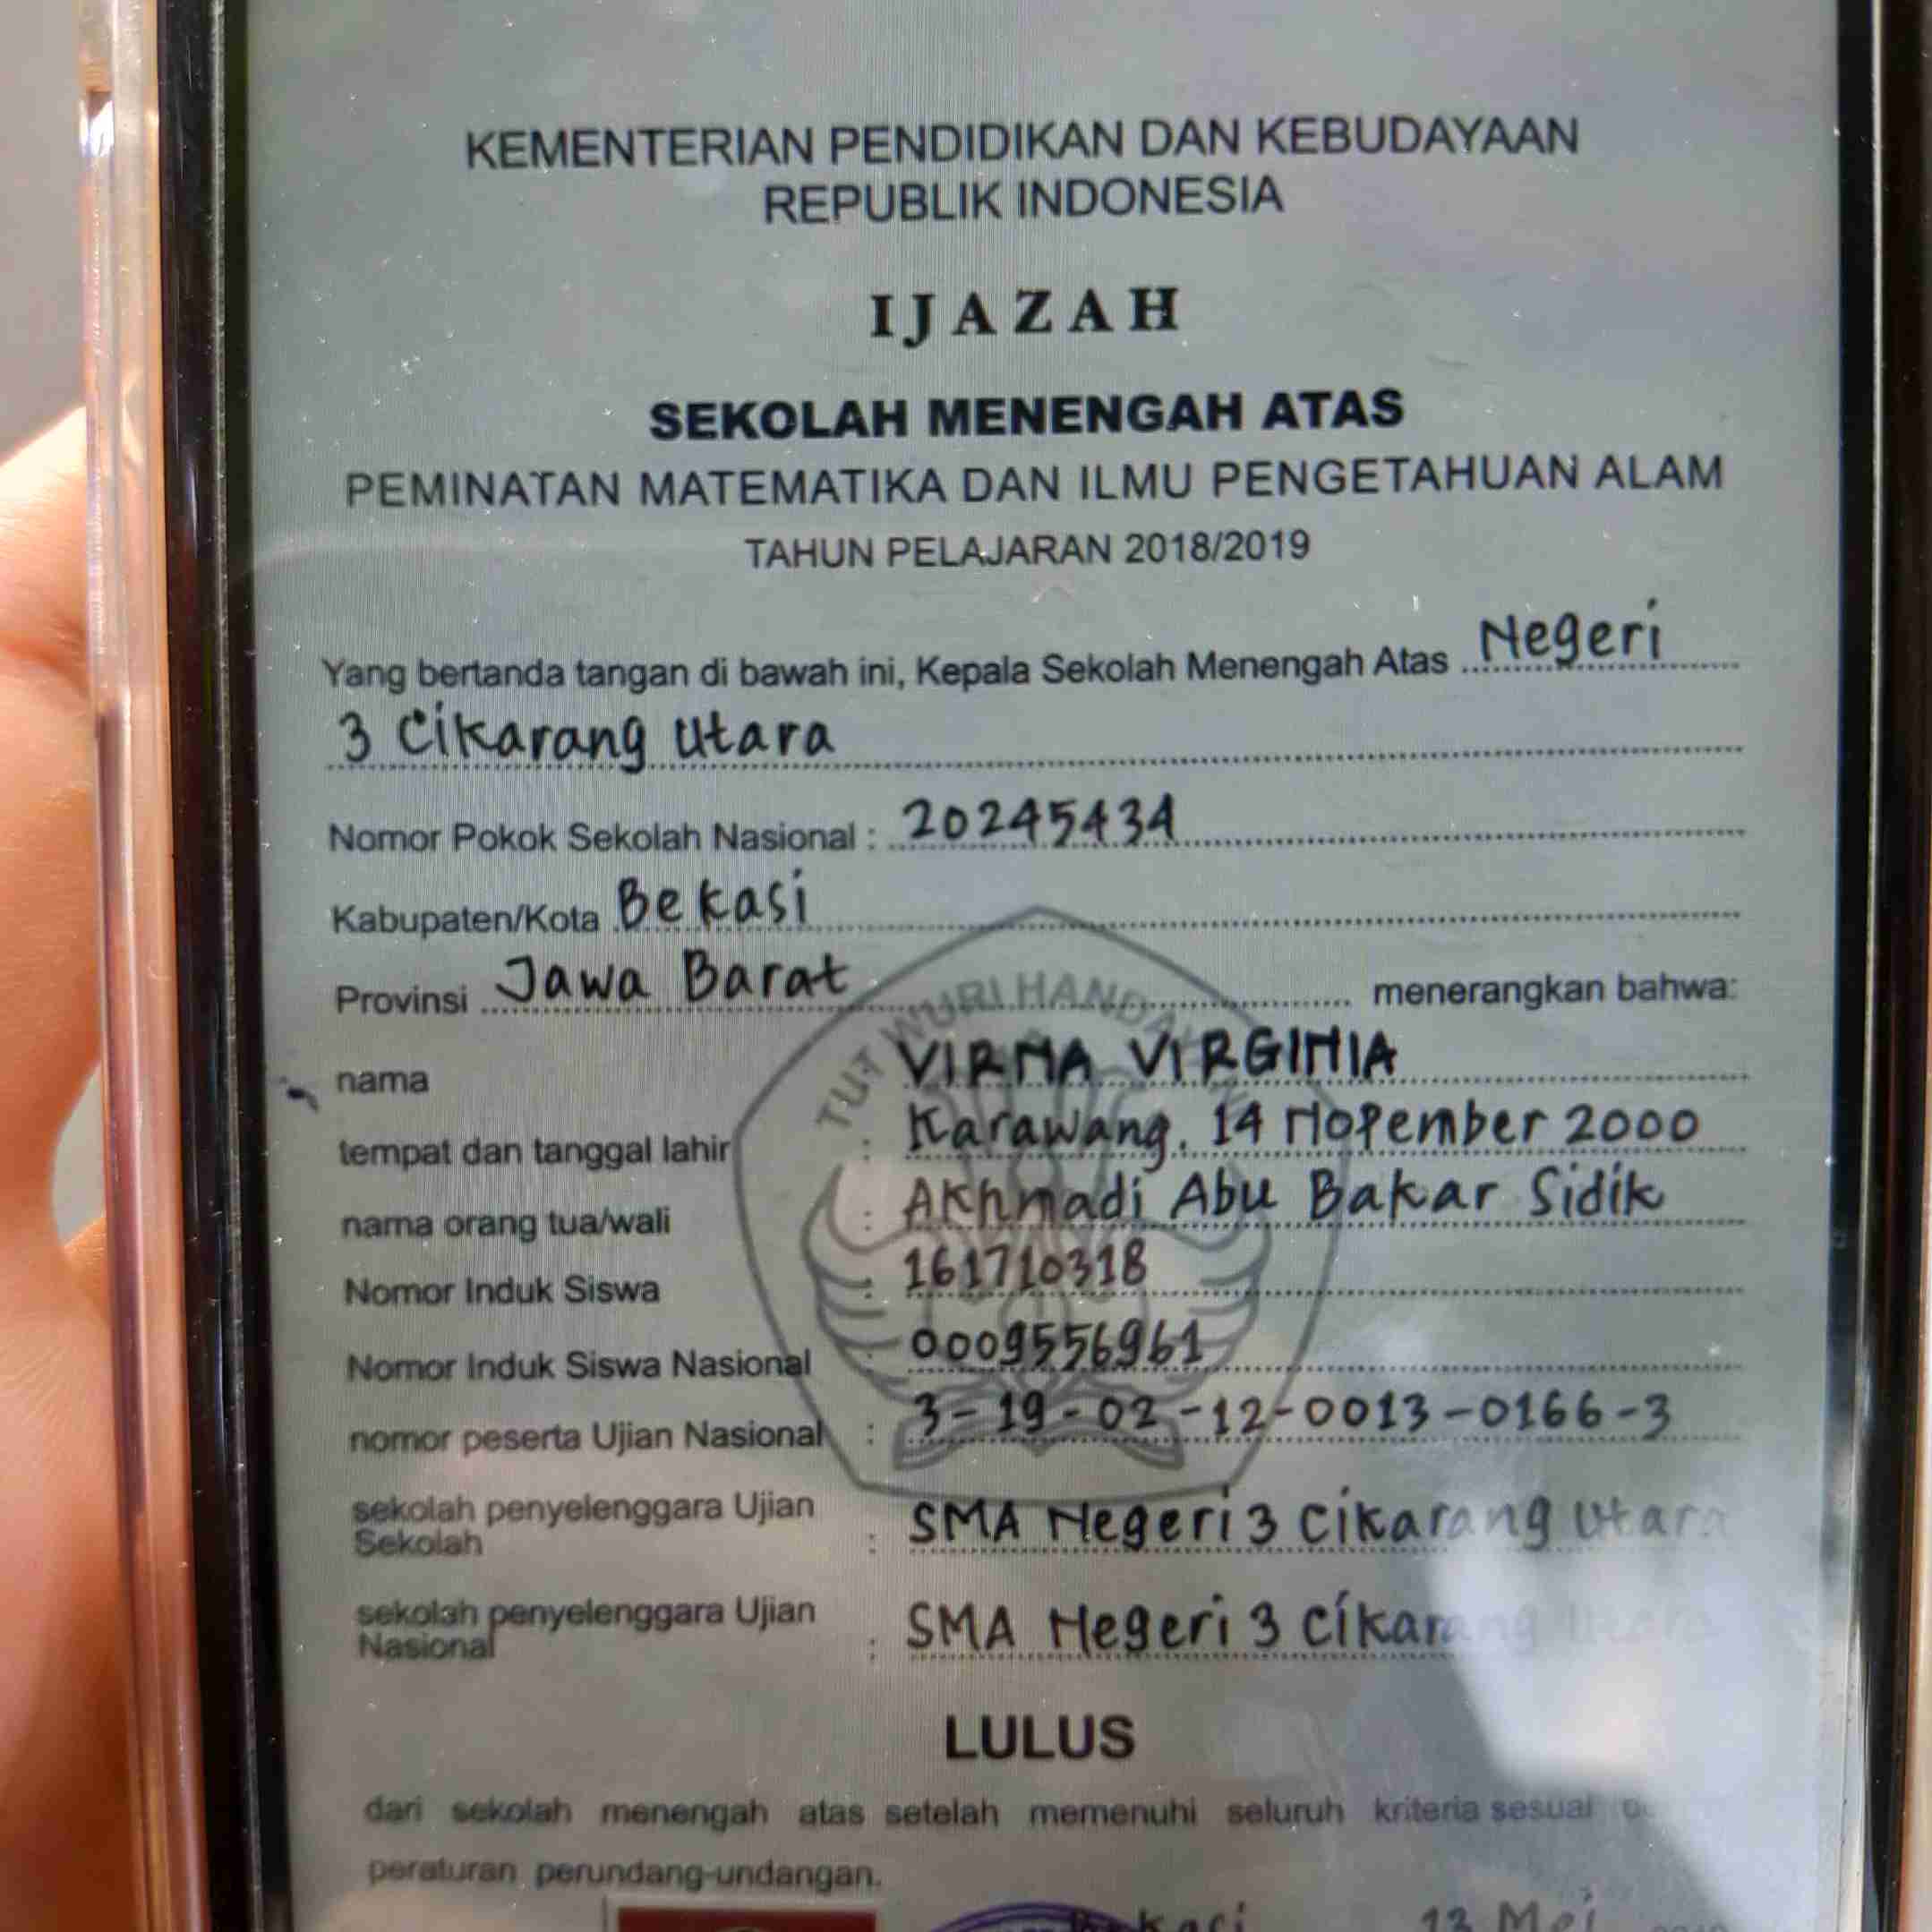 KEMENTERIAN PENDIDIKAN DAN KEBUDAYAAN
REPUBLIK INDONESIA
IJAZAH
SEKOLAH MENENGAH ATAS
PEMINATAN MATEMATIKA DAN ILMU PENGETAHUAN ALAM
TAHUN PELAJARAN 2018/2019
Yang bertanda tangan di bawah ini, Kepala Sekolah Menengah Atas Negeri
3 Cikarang Utara
Nomor Pokok Sekolah Nasional : 20245434
Kabupaten/Kota Bekasi
Provinsi Jawa Barat menerangkan bahwa:
TUT WURI
nama : VIRNA VIRGINIA
tempat dan tanggal lahir : Karawang, 14 Nopember 2000
nama orang tua/wali : Akhmadi Abu Bakar Sidik
Nomor Induk Siswa : 161710318
Nomor Induk Siswa Nasional : 0009556961
nomor peserta Ujian Nasional : 3-19-02-12-0013-0166-3
sekolah penyelenggara Ujian
Sekolah : SMA Negeri 3 Cikarang Utara
sekolah penyelenggara Ujian
Nasional : SMA Negeri 3 Cikarang Utara
LULUS
dari sekolah menengah atas setelah memenuhi seluruh kriteria sesuai
peraturan perundang-undangan.
13 Mei